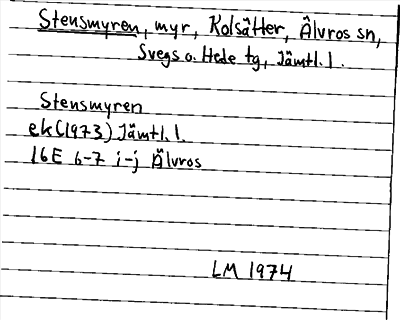 Stensmyren, myr, Kolsätter, Älvros sn,
Svegs o. Hede tg, Jämtl. l.
Stensmyren
ek (1973) Jämtl. l.
16E 6-7 i-j Älvros
LM 1974